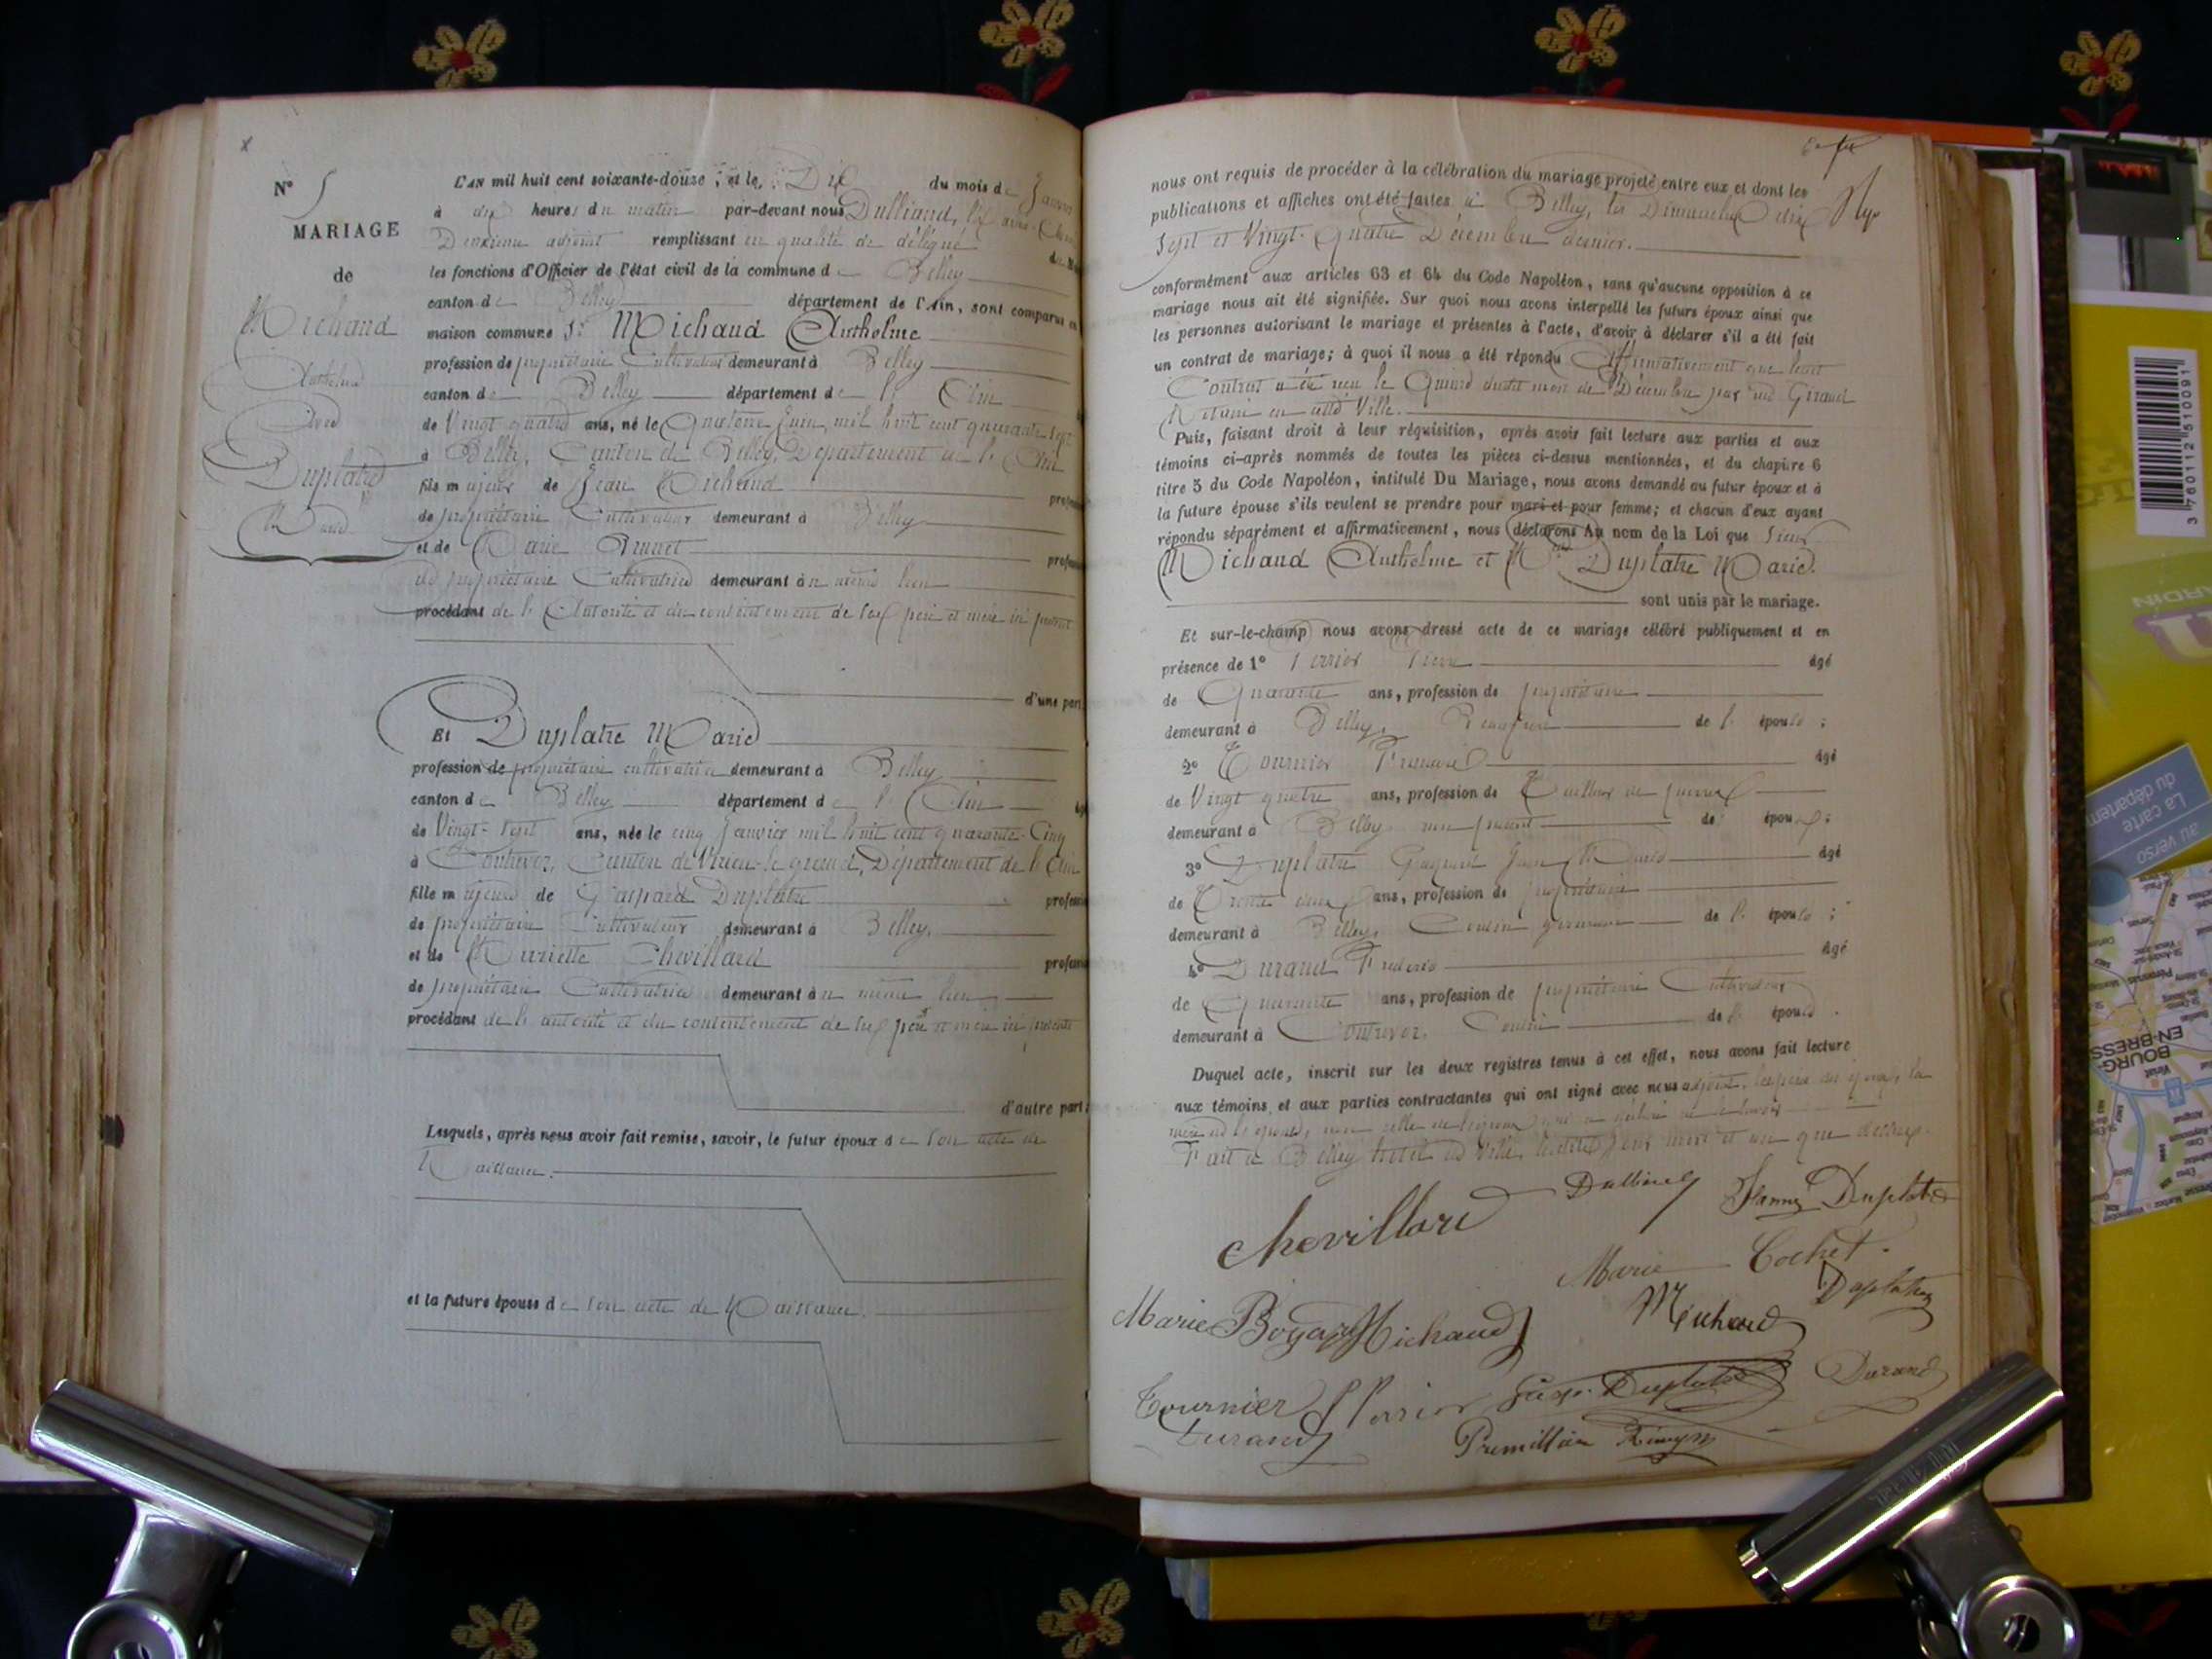 N° 5
MARIAGE
de
Michaud
Anthelme
Avec
Duplatre
Marie
L'AN mil huit cent soixante-douze, et le Dix du mois de Janvier
à dix heures du matin par-devant nous
Deuxième adjoint remplissant en qualité de délégué
les fonctions d'Officier de l'état civil de la commune de Belley
canton de Belley département de l'Ain, sont comparus en
maison commune Sr Michaud Anthelme
profession de propriétaire Cultivateur demeurant à Belley
canton de Belley département de l'Ain
de Vingt quatre ans, né le Quatorze Juin mil huit cent quarante sept
à Belley, Canton de Belley, Département de l'Ain
fils majeur de Jean Michaud
de propriétaire Cultivateur demeurant à Belley
et de Marie Brunet
de propriétaire Cultivatrice demeurant au même lieu
procédant de l'Autorité et du consentement de ses père et mère ici présents
d'une part
Et Duplatre Marie
profession de propriétaire cultivatrice demeurant à Belley
canton de Belley département de l'Ain
de Vingt-sept ans, née le cinq Janvier mil huit cent quarante-Cinq
à Contrevoz, Canton de Virieu-le-grand, Département de l'Ain
fille majeure de Gaspard Duplatre
de propriétaire Cultivateur demeurant à Belley,
et de Mariette Chevillard
de propriétaire Cultivatrice demeurant au même lieu
procédant de l'autorité et du consentement de ses père et mère ici présents
d'autre part;
Lesquels, après nous avoir fait remise, savoir, le futur époux de son acte de
Naissance.
et la future épouse de son acte de Naissance.
nous ont requis de procéder à la célébration du mariage projeté entre eux et dont les
publications et affiches ont été faites à Belley, les Dimanches dix
Sept et Vingt-Quatre Décembre dernier.
conformément aux articles 63 et 64 du Code Napoléon, sans qu'aucune opposition à ce
mariage nous ait été signifiée. Sur quoi nous avons interpellé les futurs époux ainsi que
les personnes autorisant le mariage et présentes à l'acte, d'avoir à déclarer s'il a été fait
un contrat de mariage; à quoi il nous a été répondu Affirmativement que leur
Contrat a été reçu le Quinze dudit mois de Décembre par Me Giraud
Notaire en cette Ville.
Puis, faisant droit à leur réquisition, après avoir fait lecture aux parties et aux
témoins ci-après nommés de toutes les pièces ci-dessus mentionnées, et du chapitre 6
titre 5 du Code Napoléon, intitulé Du Mariage, nous avons demandé au futur époux et à
la future épouse s'ils veulent se prendre pour mari et pour femme; et chacun d'eux ayant
répondu séparément et affirmativement, nous déclarons Au nom de la Loi que Sieur
Michaud Anthelme et Duplatre Marie.
sont unis par le mariage.
Et sur-le-champ nous avons dressé acte de ce mariage célébré publiquement et en
présence de 1° Perrier Pierre âgé
de Quarante ans, profession de propriétaire
demeurant à Belley, de l'épouse;
2° Tournier François âgé
de Vingt quatre ans, profession de Tailleur de pierres
demeurant à Belley non parent des époux;
3° Duplatre Gaspard Jean Marie âgé
de Trente deux ans, profession de propriétaire
demeurant à Belley, Cousin germain de l'épouse;
4° Durand Frédéric âgé
de Quarante ans, profession de propriétaire Cultivateur
demeurant à Contrevoz, Cousin de l'épouse.
Duquel acte, inscrit sur les deux registres tenus à cet effet, nous avons fait lecture
aux témoins et aux parties contractantes qui ont signé avec nous adjoint,
Fait à Belley hôtel de Ville, lesdits jour mois et an que dessus.
Chevillard
Duplatre
Marie Cochet.
Duplatre
Marie Boyar Michaud
Michaud
Tournier Perrier Gasp. Duplatre Durand
Durand
3 760112 510091
La carte
du département
au verso
JARDIN
BOURG-
EN-BRESSE